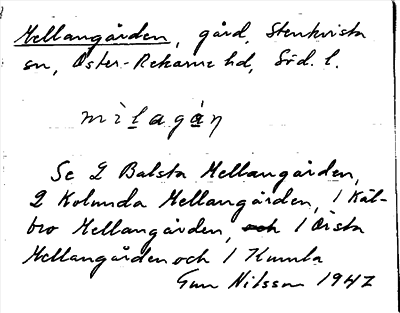 Mellangården, gård, Stenkvista
sn, Öster-Rekarne hd, Söd. l.
mìlagán
Se 2 Balsta Mellangården,
2 Kolunda Mellangården, 1 Käl-
bro Mellangården, 1 Örsta
Mellangården och 1 Kumla
Gun Nilsson 1947